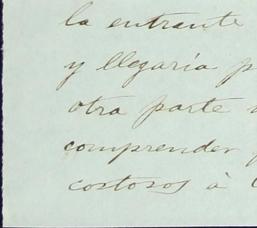 la entrante
y llegaría p
otra parte
comprender
costosos à